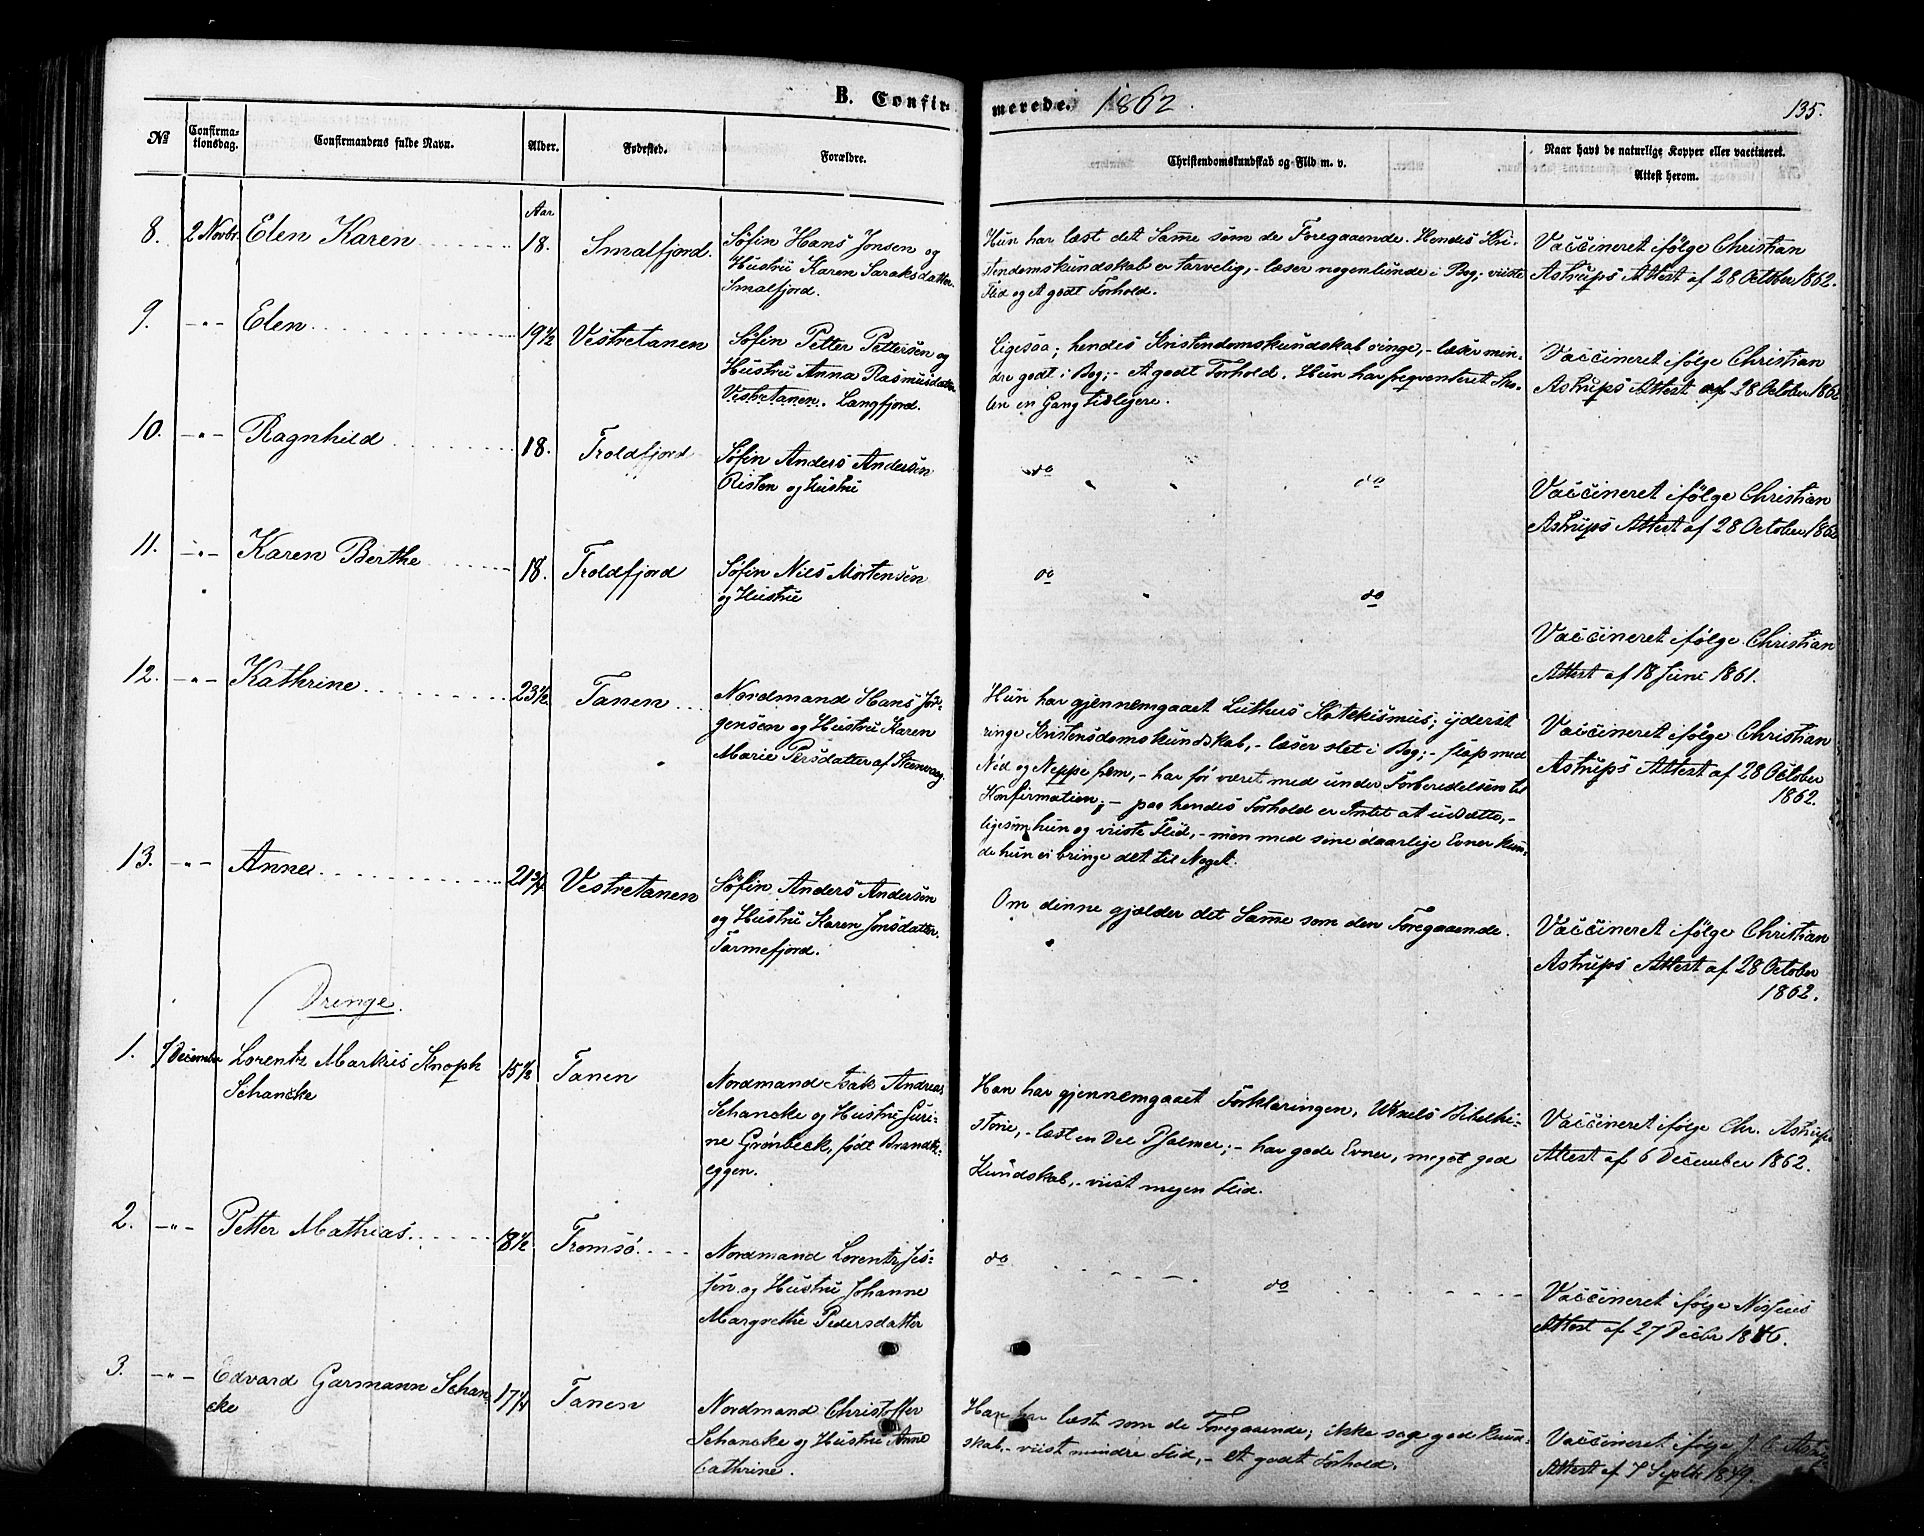 B. Confirmerede. 1862
135.
№
Confirma-
tionsdag.
Confirmandens fulde Navn.
Alder.
Fødested.
Forældre.
Christendomskundskab og Flid m. v.
Naar havt de naturlige Kopper eller vaccineret.
Attest herom.
Aar
8. 2 Novbr. Elen Karen 18. Smalfjord.
Søfin Hans Jonsen og
Hustru Karen Saraksdatter
Smalfjord.
Hun har læst det Samme som de Foregaaende. Hendes Kri-
stendomskundskab er tarvelig, - læser nogenlunde i Bog; viiste
Flid og et godt Forhold.
Vaccineret ifølge Christian
Astrups Attest af 28 October 1862.
9. -"- Elen 19½ Vestretanen
Søfin Petter Pettersen og
Hustru Anna Rasmusdatter
Vestretanen. Langfjord.
Ligesaa; hendes Kristendomskundskab ringe, - læser min-
dre godt i Bog; - Et godt Forhold. Hun har freqventeret Sko-
len en Gang tidligere.
Vaccineret ifølge Christian
Astrups Attest af 28 October 1862
10. -"- Ragnhild 18. Troldfjord
Søfin Anders Andersen
Risten og Hustru
do " " do
Vaccineret ifølge Christian
Astrups Attest af 28 October 1862
11. -"- Karen Berthe 18. Troldfjord
Søfin Nils Mortensen
og Hustru
do " do
Vaccineret ifølge Christian
Attest af 18 Juni 1861.
12. -"- Kathrine 23½ Tanen
Nordmand Hans Jør-
gensen og Hustru Karen
Marie Persdatter af Steenvaag
Hun har gjennemgaaet Luthers Katekismus; yderst
ringe Kristensdomskundskab, - læser slet i Bog; - slap med
Nød og Neppe frem, - har før været med under Forberedelsen til
Konfirmation; - paa hendes Forhold er Intet at udsætte, -
ligesom hun og viiste Flid, - men med sine daarlige Evner kun-
de hun ei bringe det til Noget.
Vaccineret ifølge Christian
Astrups Attest af 28 October
1862.
13. -"- Anne 21¾ Vestretanen
Søfin Anders Andersen
og Hustru Karen Jonsdatter
Tarmefjord.
Om denne gjælder det Samme som den Foregaaende.
Vaccineret ifølge Christian
Astrups Attest af 28 October
1862.
Drenge.
1. 7 December Lorentz Markus Knoph
Schancke
15½ Tanen
Nordmand Isak Andreas
Schancke og Hustru Juri-
ne Grønbeck, født Brandt-
eggen.
Han har gjennemgaaet Forklaringen, Wexels Bibelhi-
storie, - læst en Del Psalmer; - har gode Evner, meget god
Kundskab, - viist megen Flid.
Vaccineret ifølge Chr. Astrups
Attest af 6 December 1862.
2. -"- Petter Mathias 18½ Tromsø
Nordmand Lorentz Jes-
sen og Hustru Johanne
Margrethe Pedersdatter
do do
Vaccineret ifølge
Attest af 27 Decbr 1846.
3. -"- Edvard Garmann Schan
cke
17¼ Tanen
Nordmand Christoffer
Schancke og Hustru Anne
Cathrine.
Han har læst som de Foregaaende; ikke saa god Kund-
skab, - viist mindre Flid, - et godt Forhold.
Vaccineret ifølge
Attest af 7 Septbr 1849.